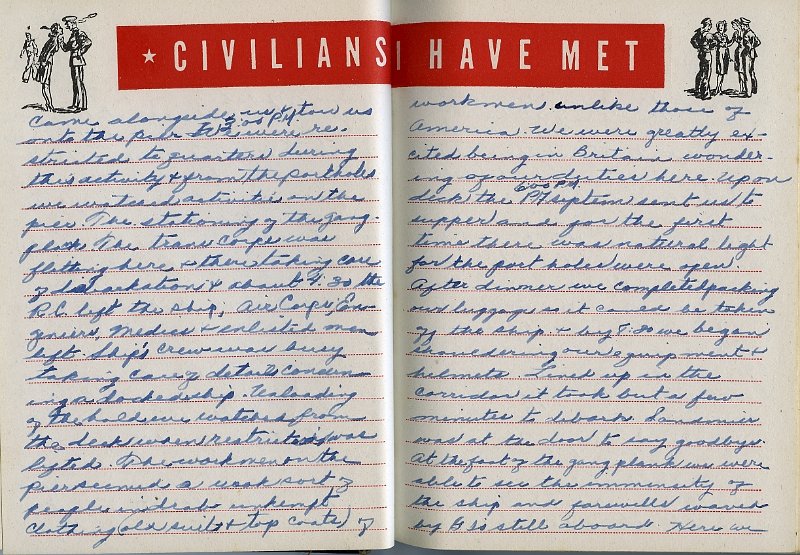 ★ CIVILIANS I HAVE MET
came alongside us & tow us
onto the pier 5:00 PM were re-
stricted to quarters during
this activity & from the portholes
we watched activities on the
pier. The stationing of the gang-
plank The trans corps was
flitting here & there taking care
of debarkation & about 4:30 the
R.C. left the ship, Air Corps, En-
gineers, Medics & enlisted men
left. Ship's crew was busy
taking care of details concern-
ing a docked ship. Unloading
of the hold we watched from
the deck when restriction was
lifted. The workmen on the
pier seemed a weak sort of
people in drab unkempt
clothing (old suits & top coats) of
workmen unlike those of
America. We were greatly ex-
cited being in Britain wonder-
ing of our duties here. Upon
deck the 6:00 PM septem sent us to
supper and for the first
time there was natural light
for the port holes were open.
After dinner we completed packing
our luggage so it could be taken
off the ship & by 7:30 we began
shouldering our equipment &
helmets. Lined up in the
corridor it took but a few
minutes to debark.
was at the door to say goodbye.
At the foot of the gang plank we were
able to see the immensity of
the ship and farewells waved
by still aboard. Here we